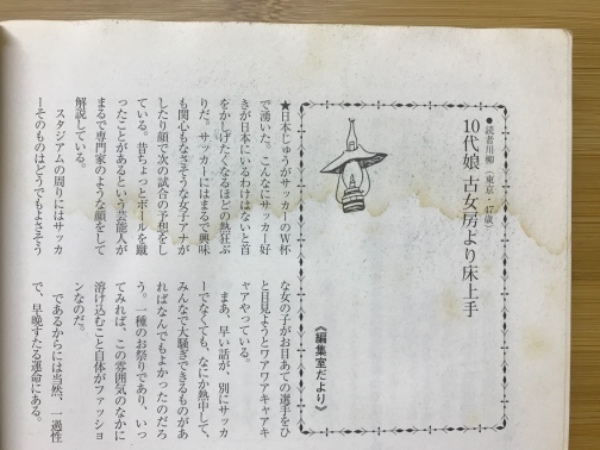 ●読者川柳(東京・47歳)
10代娘 古女房より床上手
《編集室だより》
★日本じゅうがサッカーのW杯
で湧いた。こんなにサッカー好
きが日本にいるわけはないと首
をかしげたくなるほどの熱狂ぶ
りだ。サッカーにはまるで興味
も関心もなさそうな女子アナが
したり顔で次の試合の予想をし
ている。昔ちょっとボールを蹴
ったことがあるという芸能人が
まるで専門家のような顔をして
解説している。
スタジアムの周りにはサッカ
ーそのものはどうでもよさそう
な女の子がお目あての選手をひ
と目見ようとワアワアキャアキ
ャアやっている。
まあ、早い話が、別にサッカ
ーでなくても、なにか熱中して、
みんなで大騒ぎできるものがあ
ればなんでもよかったのだろ
う。一種のお祭りであり、いっ
てみれば、この雰囲気のなかに
溶け込むこと自体がファッショ
ンなのだ。
であるからには当然、一過性
で、早晩すたる運命にある。